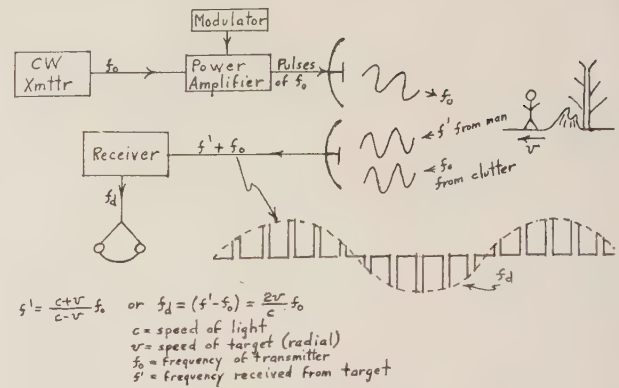 Modulator
CW
Xmttr
f₀
Power
Amplifier
Pulses
of f₀
f₀
Receiver
f' + f₀
f' from man
f₀
from clutter
v
f_d
f_d
f' = (c+v)/(c-v) f₀ or f_d = (f'-f₀) = 2v/c f₀
c = speed of light
v = speed of target (radial)
f₀ = frequency of transmitter
f' = frequency received from target